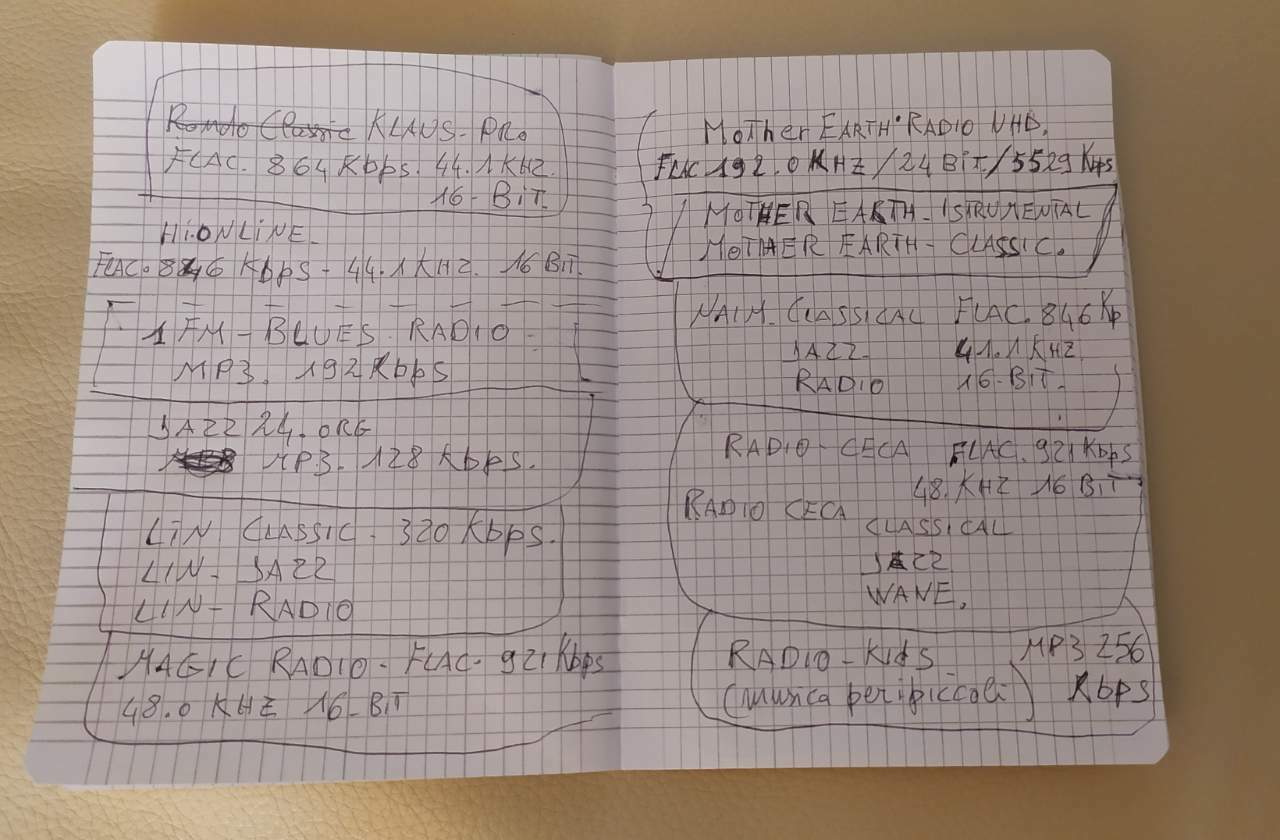 Rondo Classic KLAUS-PRO
FLAC. 864 Kbps. 44.1 KHZ.
16-BiT.
Hi.ONLiNE-
FLAC. 846 Kbps - 44.1 KHZ. 16 BiT.
1 FM-BLUES RADIO-
MP3. 192 Kbps
JAZZ 24.ORG
MP3. 128 Kbps.
LiN CLASSIC - 320 Kbps.
LIN- JAZZ
LIN- RADIO
MAGIC RADIO- FLAC- 921 Kbps
48.0 KHZ 16-BiT
MoTher EARTH RADIO UHD.
FLAC 192.0 KHZ/24 BiT/5529 Kbps
MOTHER EARTH-ISTRUMENTAL
MOTHER EARTH-CLASSIC.
NAIM- CLASSICAL FLAC. 846 Kp
JAZZ- 41.1 KHZ
RADIO 16-BiT.
RADIO-CECA FLAC. 921 Kbps
48. KHZ 16 BiT
RADIO CECA
CLASSICAL
JAZZ
WANE.
RADIO-Kids MP3 256
(musica per i piccoli) Kbps